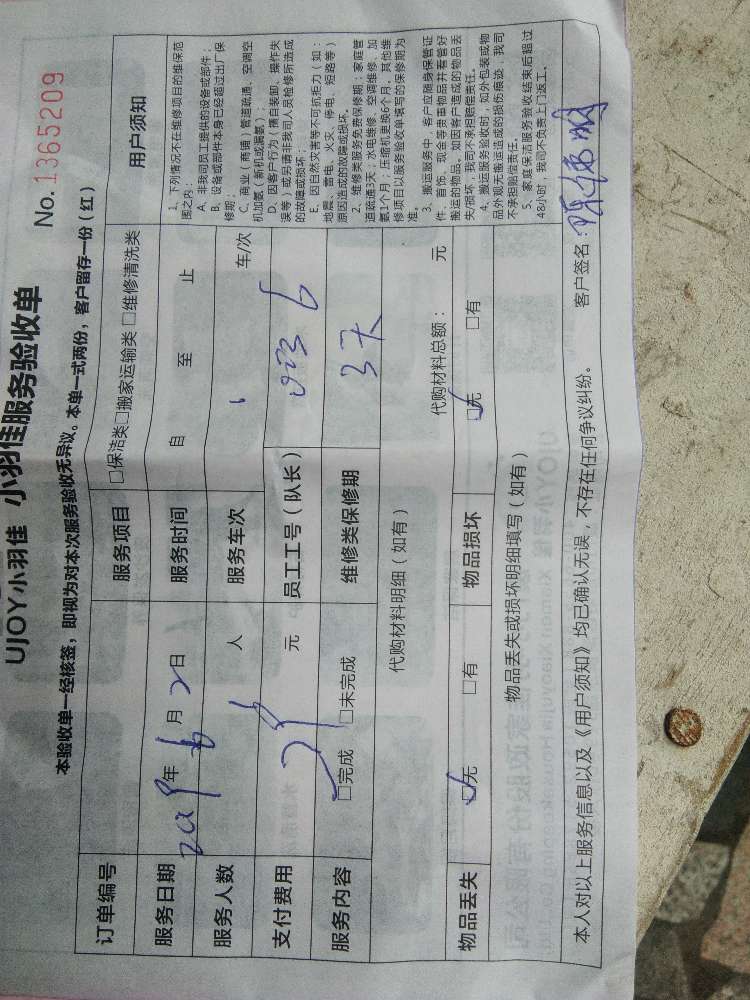 UJOY小羽佳 小羽佳服务验收单 No.1365209
本验收单一经核签，即视为对本次服务验收无异议。本单一式两份，客户留存一份（红）
订单编号 服务项目 □保洁类□搬家运输类 □维修清洗类
服务日期 年 6月2日 服务时间 自 至 止
服务人数 人 服务车次 车/次
支付费用 元 员工工号（队长）
服务内容 □完成 □未完成 维修类保修期 3天
代购材料明细（如有） 代购材料总额： 元
物品丢失 □无 □有 物品损坏 □无 □有
物品丢失或损坏明细填写（如有）
用户须知
1、下列情况不在维修项目的维保范
围之内：
A、非我司员工提供的设备或部件；
B、设备或部件本身已经超过出厂保
修期；
C、商业（商铺）管道疏通、空调空
机加氨（新机或漏氨）；
D、因客户行为（擅自装卸、操作失
误等）或另请非我司人员检修所造成
的故障或损坏；
E、因自然灾害等不可抗拒力（如：
地震、雷电、火灾、停电、短路等）
原因造成的故障或损坏。
2、维修类服务免费保修期：家庭管
道疏通3天；水电维修、空调维修、加
氨1个月；压缩机更换6个月，其他维
修项目以服务验收单填写的保修期为
准。
3、搬运服务中，客户应随身保管证
件、首饰、现金等贵重物品并看管好
搬运的物品。如因客户造成的物品丢
失/损坏，我司不承担赔偿责任。
4、搬运服务验收时，如外包装或物
品外观无搬运造成的损伤痕迹，我司
不承担赔偿责任。
5、家庭保洁服务验收结束后超过
48小时，我司不负责上门返工。
本人对以上服务信息以及《用户须知》均已确认无误，不存在任何争议纠纷。 客户签名：